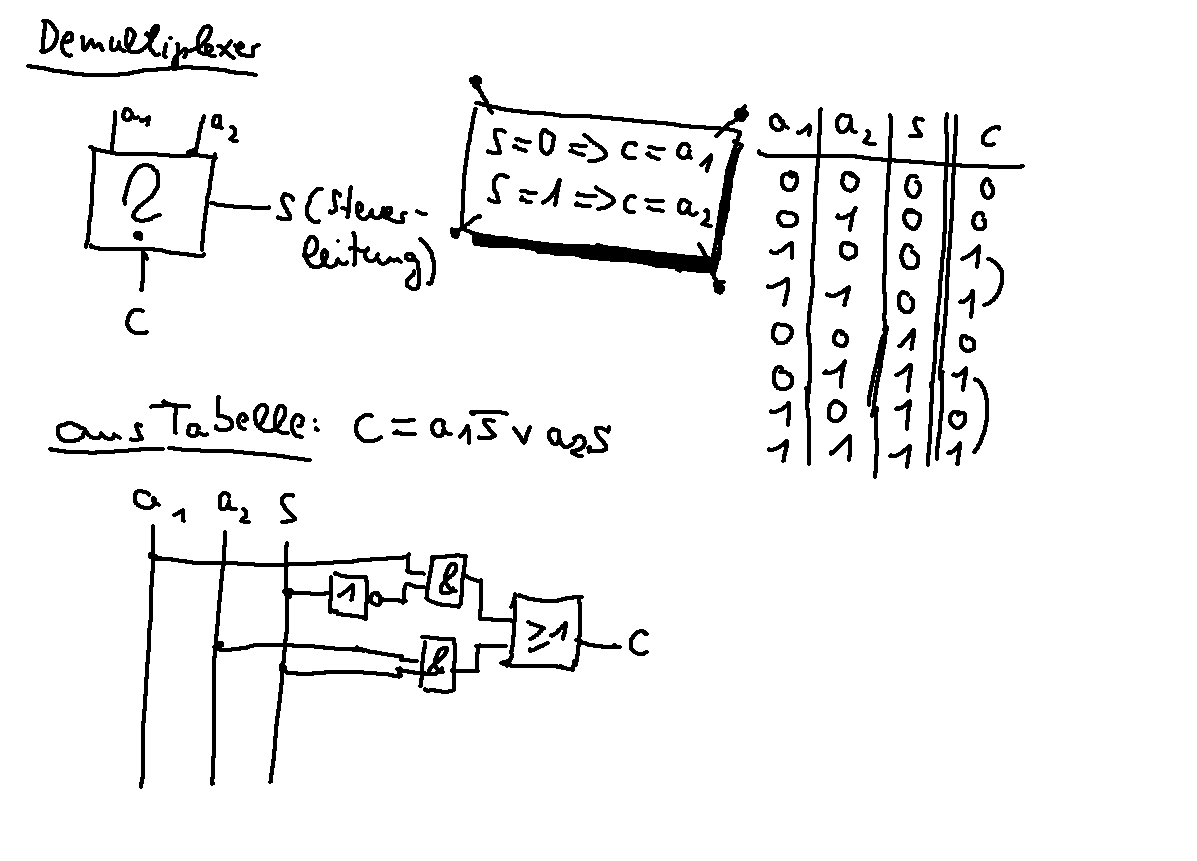 Demultiplexer
a1 a2
?
s (Steuer-
leitung)
C
s = 0 => c = a1
s = 1 => c = a2
a1 a2 s c
0 0 0 0
0 1 0 0
1 0 0 1
1 1 0 1
0 0 1 0
0 1 1 1
1 0 1 0
1 1 1 1
aus Tabelle: C = a1s̅ v a2s
a1 a2 s
&
1
≥1 C
&